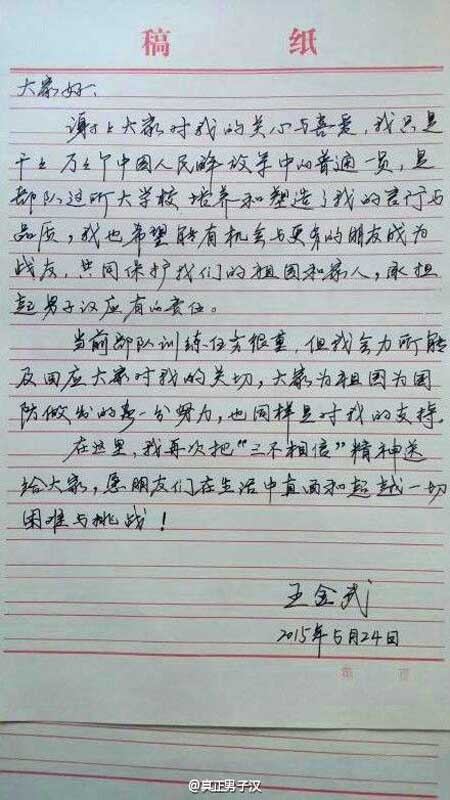 稿 纸
大家好:
谢谢大家对我的关心与喜爱,我只是
千千万万个中国人民解放军中的普通一员,是
部队这所大学校培养和塑造了我的言行与
品质,我也希望能有机会与更多的朋友成为
战友,共同保护我们的祖国和家人,承担
起男子汉应有的责任。
当前部队训练任务很重,但我会力所能
及回应大家对我的关切,大家为祖国为国
防做出的每一分努力,也同样是对我的支持。
在这里,我再次把“三不相信”精神送
给大家,愿朋友们在生活中直面和超越一切
困难与挑战!
王金武
2015年5月24日
第 页
@真正男子汉